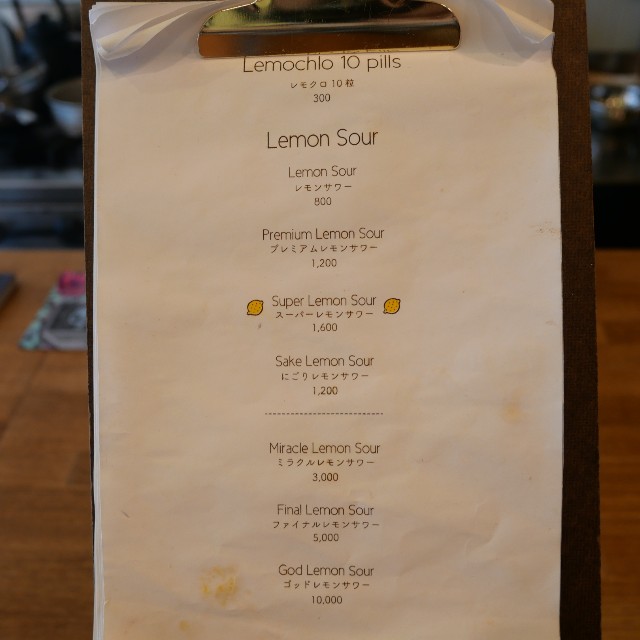 Lemochlo 10 pills
レモクロ10粒
300
Lemon Sour
Lemon Sour
レモンサワー
800
Premium Lemon Sour
プレミアムレモンサワー
1,200
Super Lemon Sour
スーパーレモンサワー
1,600
Sake Lemon Sour
にごりレモンサワー
1,200
Miracle Lemon Sour
ミラクルレモンサワー
3,000
Final Lemon Sour
ファイナルレモンサワー
5,000
God Lemon Sour
ゴッドレモンサワー
10,000